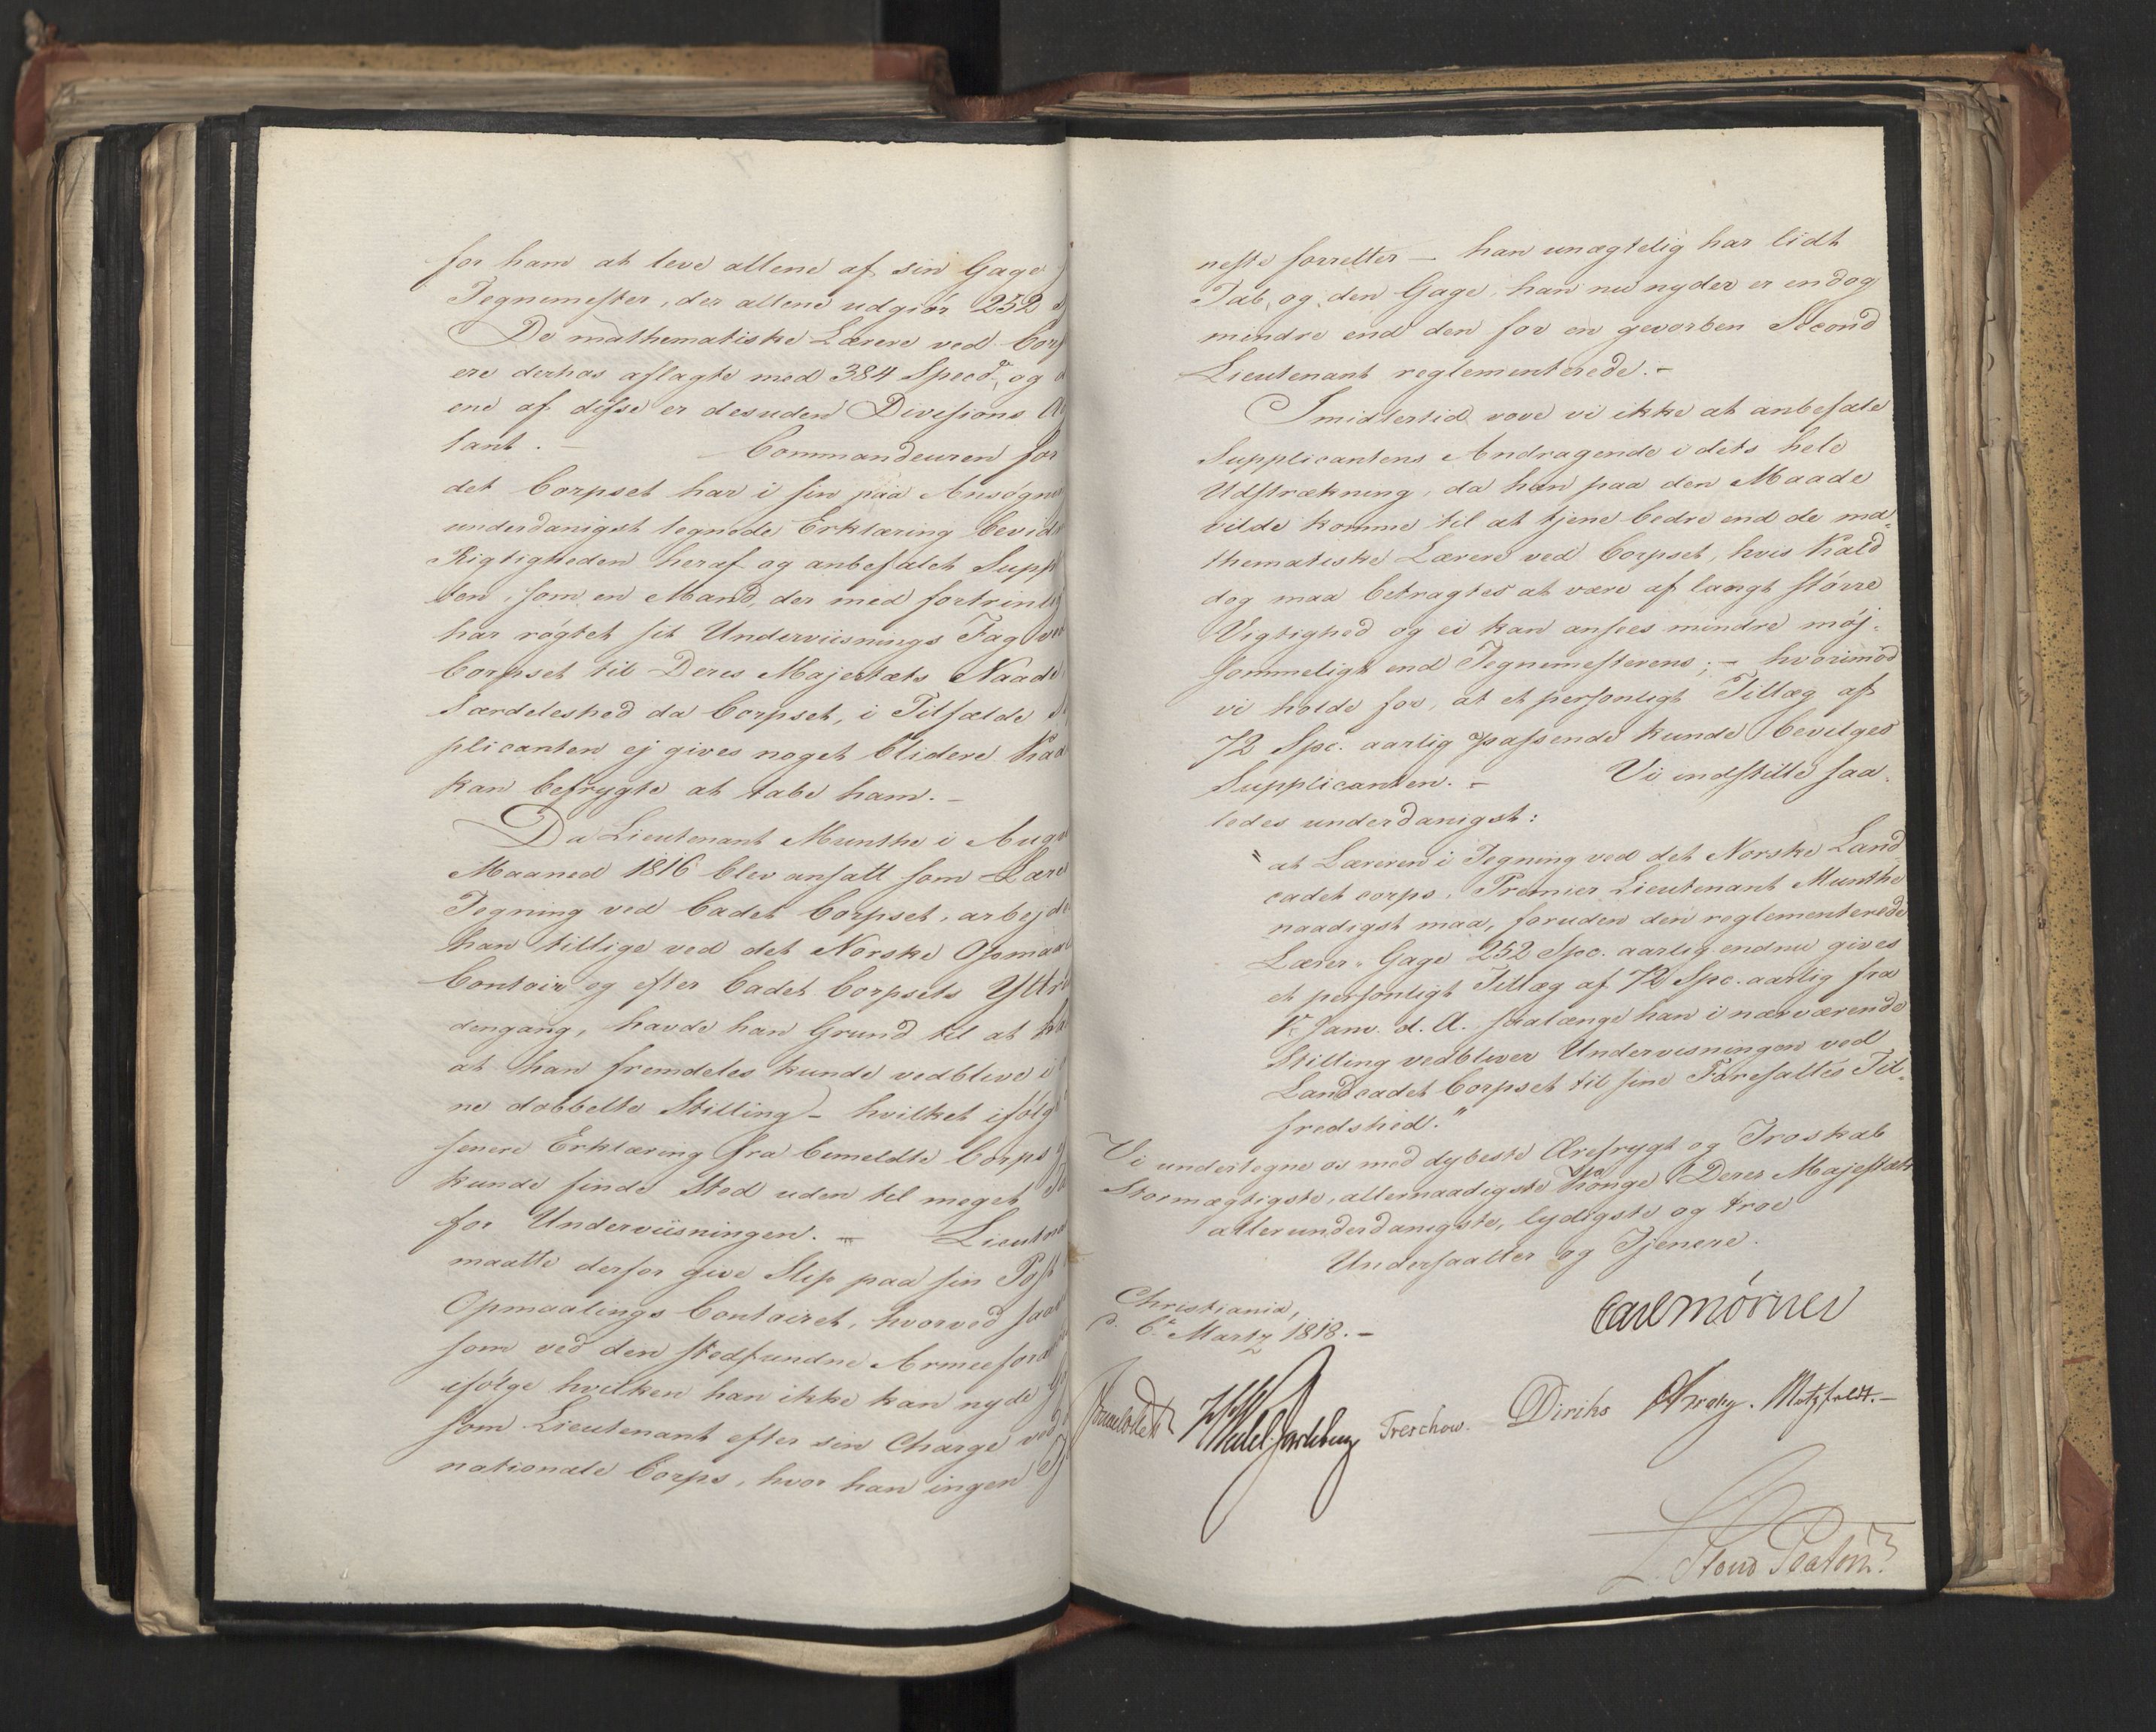 for ham at leve allene af sin Gage
Tegnemester, der allene udgiør 252
De mathematiske Lærere ved Corp
ere derhos aflagte med 384 Specd., og
ene af disse er desuden Divisions
tant. — Commandeuren for
det Corpset har i sin paa Ansøgn
underdanigst tegnede Erklæring bevid
Rigtigheden heraf og anbefalet Supp
ten, som en Mand, der med fortrinlig
har røgtet sit Underviisnings Fag ved
Corpset til Deres Majestæts Naade
Særdeleshed da Corpset, i Tilfælde
plicanten ej gives noget blidere Kaa
kan befrygte at tabe ham. —
Da Lieutenant Munthe i Aug
Maaned 1816 blev ansatt som Lære
Tegning ved Cadet Corpset, arbejde
han tillige ved det Norske Opmaa
Contoir og efter Cadet Corpsets Yttri
dengang, havde han Grund til at
at han fremdeles kunde vedblive i
ne dobbelte Stilling — hvilket ifølg
senere Erklæring fra bemeldte Corps
kunde finde Sted uden til meget
for Underviisningen. — Lieutn
maatte derfor give Slip paa sin Post
Opmaalings Contoiret, hvorved saa
som ved den stedfundne Armeefor
ifølge hvilken han ikke kan nyde
som Lieutenant efter sin Charge ved
nationale Corps, hvor han ingen
neste forretter — han unægtelig har lidt
Tab, og den Gage, han nu nyder er endog
mindre end den for en gevorben Second
Lieutenant reglementerede. —
Imidlertid vove vi ikke at anbefale
Supplicantens Andragende i dets hele
Udstrækning, da han paa den Maade
vilde komme til at tjene bedre end de ma-
thematiske Lærere ved Corpset, hvis Kald
dog maa betragtes at være af langt større
Vigtighed og ei kan ansees mindre møj-
sommeligt end Tegnemesterens; — hvorimod
vi holde for, at et personligt Tillæg af
72 Spc. aarlig passende kunde bevilges
Supplicanten. — Vi indstille saa-
ledes underdanigst:
"at Læreren i Tegning ved det Norske Land
cadet corps, Premier Lieutenant Munthe
naadigst maa, foruden den reglementerede
Lærer-Gage 252 Spc. aarlig endnu gives
et personligt Tillæg af 72 Spc. aarlig fra
1r Janv. d. A. saalænge han i nærværende
Stilling vedbliver Undervisningen ved
Landcadet Corpset til sine Foresattes Til-
fredshed."
Vi undertegne os med dybeste Ærefrygt og Troskab
Stormægtigste, allernaadigste Konge Deres Majestæts
allerunderdanigste, lydigste og troe
Undersaatter og Tjenere.
Christiania,
d. 6te Martz 1818. —
Carl Mörner
Sommerhielm HWedel Jarlsberg Treschow. Diriks Motzfeldt. —
L. Stoud Platou